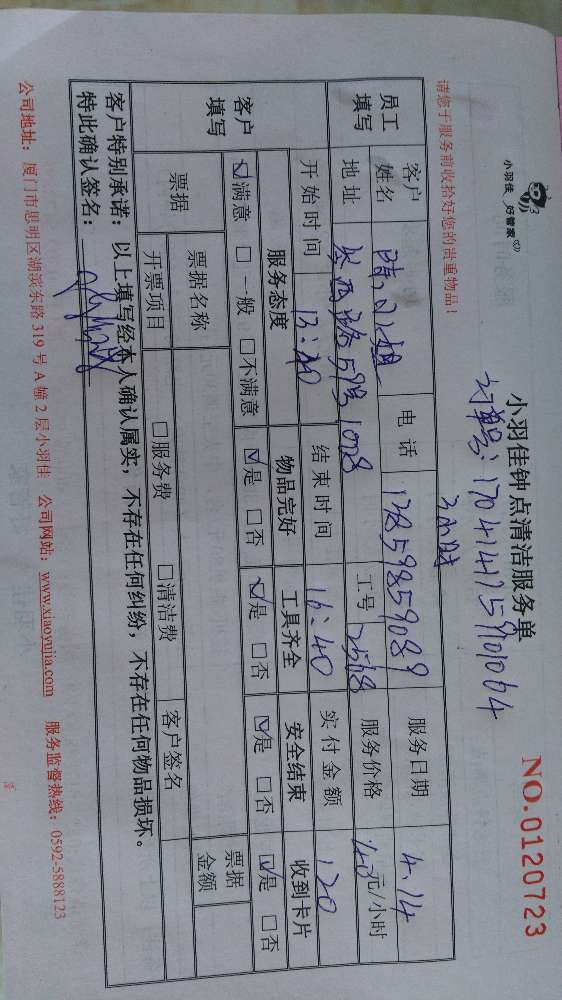 小羽佳 好管家
小羽佳钟点清洁服务单
NO.0120723
订单号：1704141259101064
请您于服务前收拾好您的贵重物品！
3小时
员工填写
客户姓名 陈小姐 电话 17859859089 服务日期 4.14
地址 59号1078 工号 2518 服务价格 40元/小时
开始时间 13:40 结束时间 16:40 实付金额 120
客户填写
服务态度 物品完好 工具齐全 安全结束 收到卡片
☑满意 □一般 □不满意 ☑是 □否 ☑是 □否 ☑是 □否 ☑是 □否
票据 票据名称 票据金额
开票项目 □服务费 □清洁费 客户签名
客户特别承诺：以上填写经本人确认属实，不存在任何纠纷，不存在任何物品损坏。
特此确认签名：
公司地址：厦门市思明区湖滨东路319号A幢2层小羽佳 公司网站：www.xiaoyujia.com 服务监督热线：0592-5888123